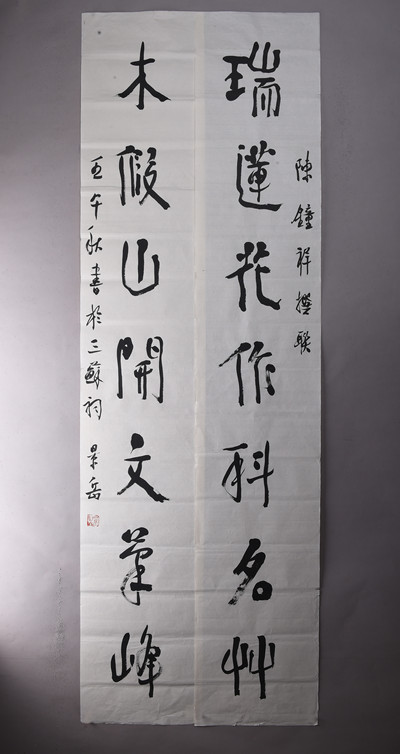 陳鐘祥撰聯
瑞蓮花作科名艸
木假山開文筆峰
壬午秋書於三蘇祠 景岳